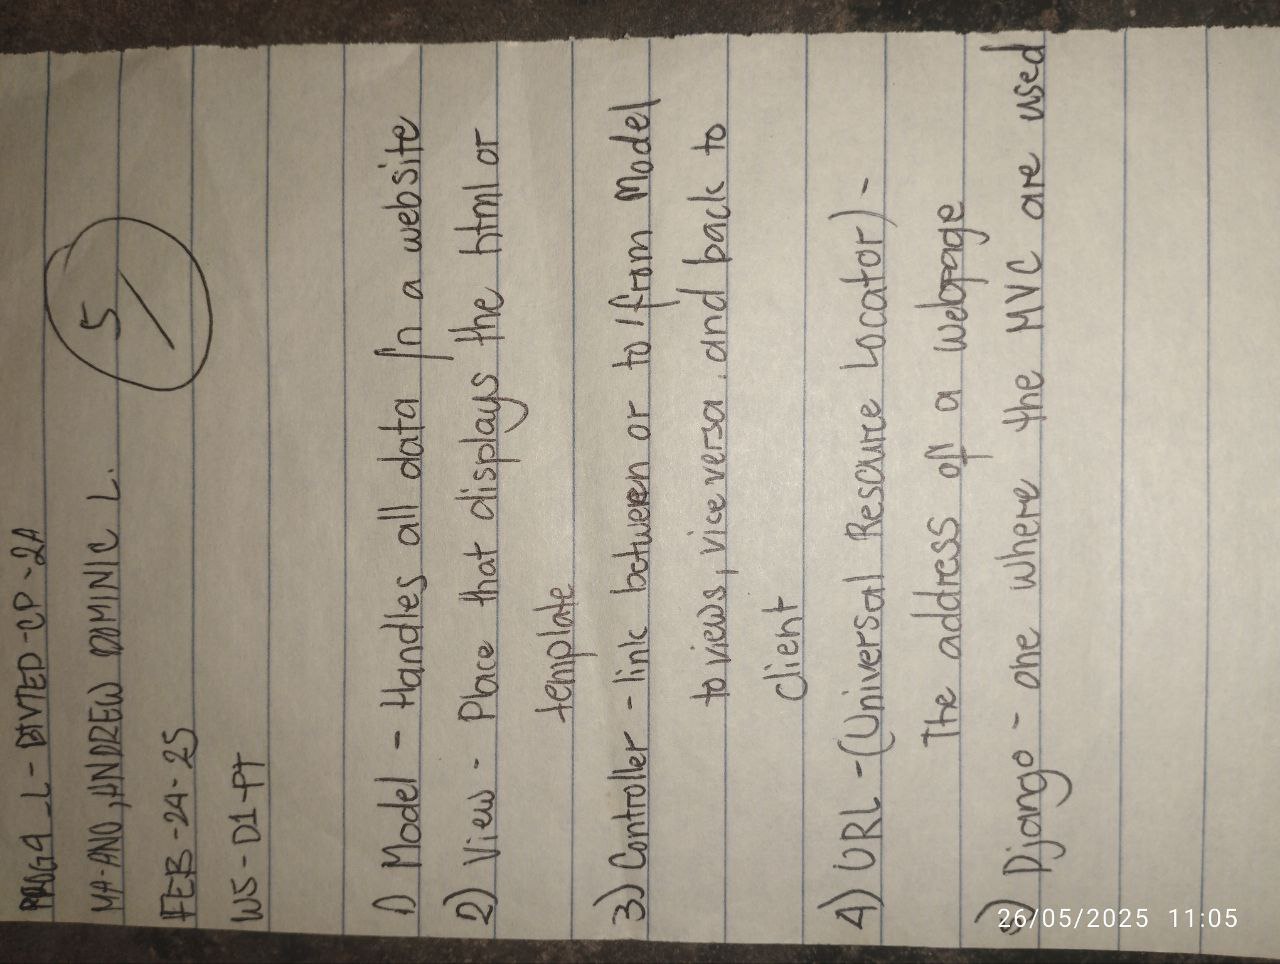 PROG4_L - BTVTED - CP - 2A
MA-ANO, ANDREW DOMINIC L.
5
FEB - 24 - 25
W5 - D1 - PT
1) Model - Handles all data in a website
2) View - Place that displays the html or
template
3) Controller - link between or to / from Model
to views, vice versa. and back to
client
4) URL - (Universal Resource Locator) -
The address of a webpage
5) Django - one where the MVC are used
26/05/2025 11:05